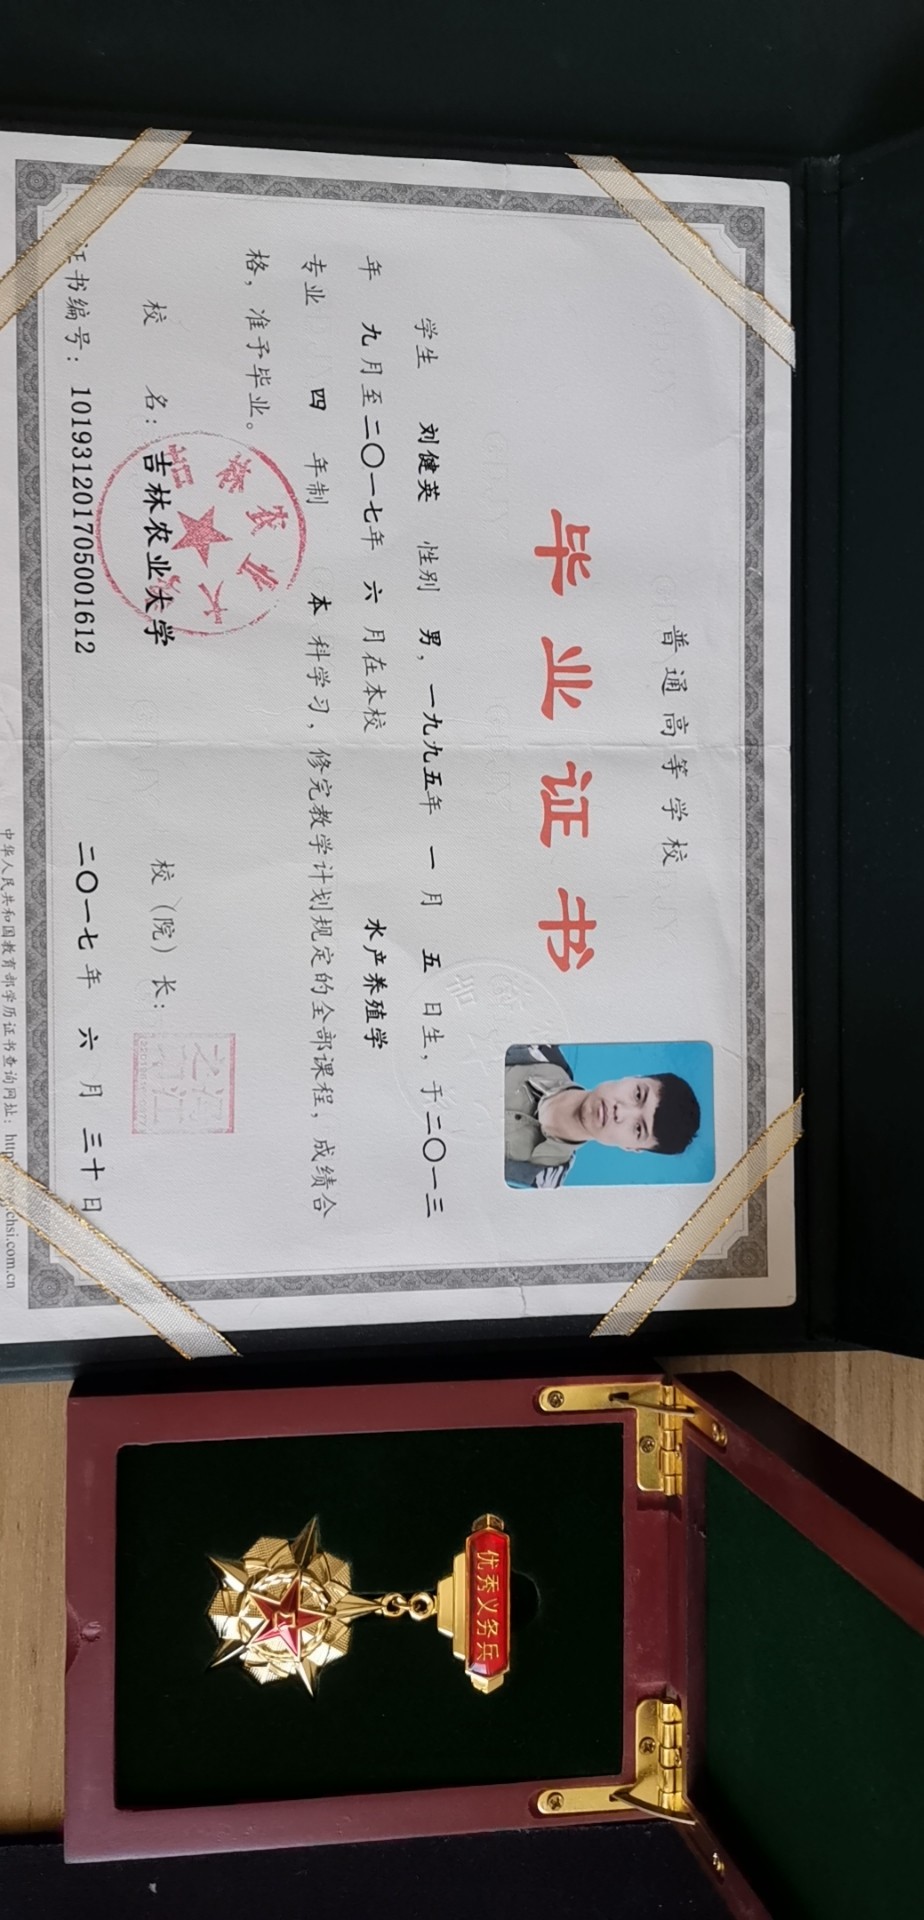 普通高等学校
毕业证书
学生 刘健英 性别 男，一九九五年 一 月 五 日生，于二〇一三
年 九月至二〇一七年 六 月在本校 水产养殖学
专业 四 年制 本 科学习，修完教学计划规定的全部课程，成绩合
格，准予毕业。
校 名：吉林农业大学 校（院）长：
证书编号：101931201705001612 二〇一七年 六 月 三十日
中华人民共和国教育部学历证书查询网址：http chsi.com.cn
优秀义务兵